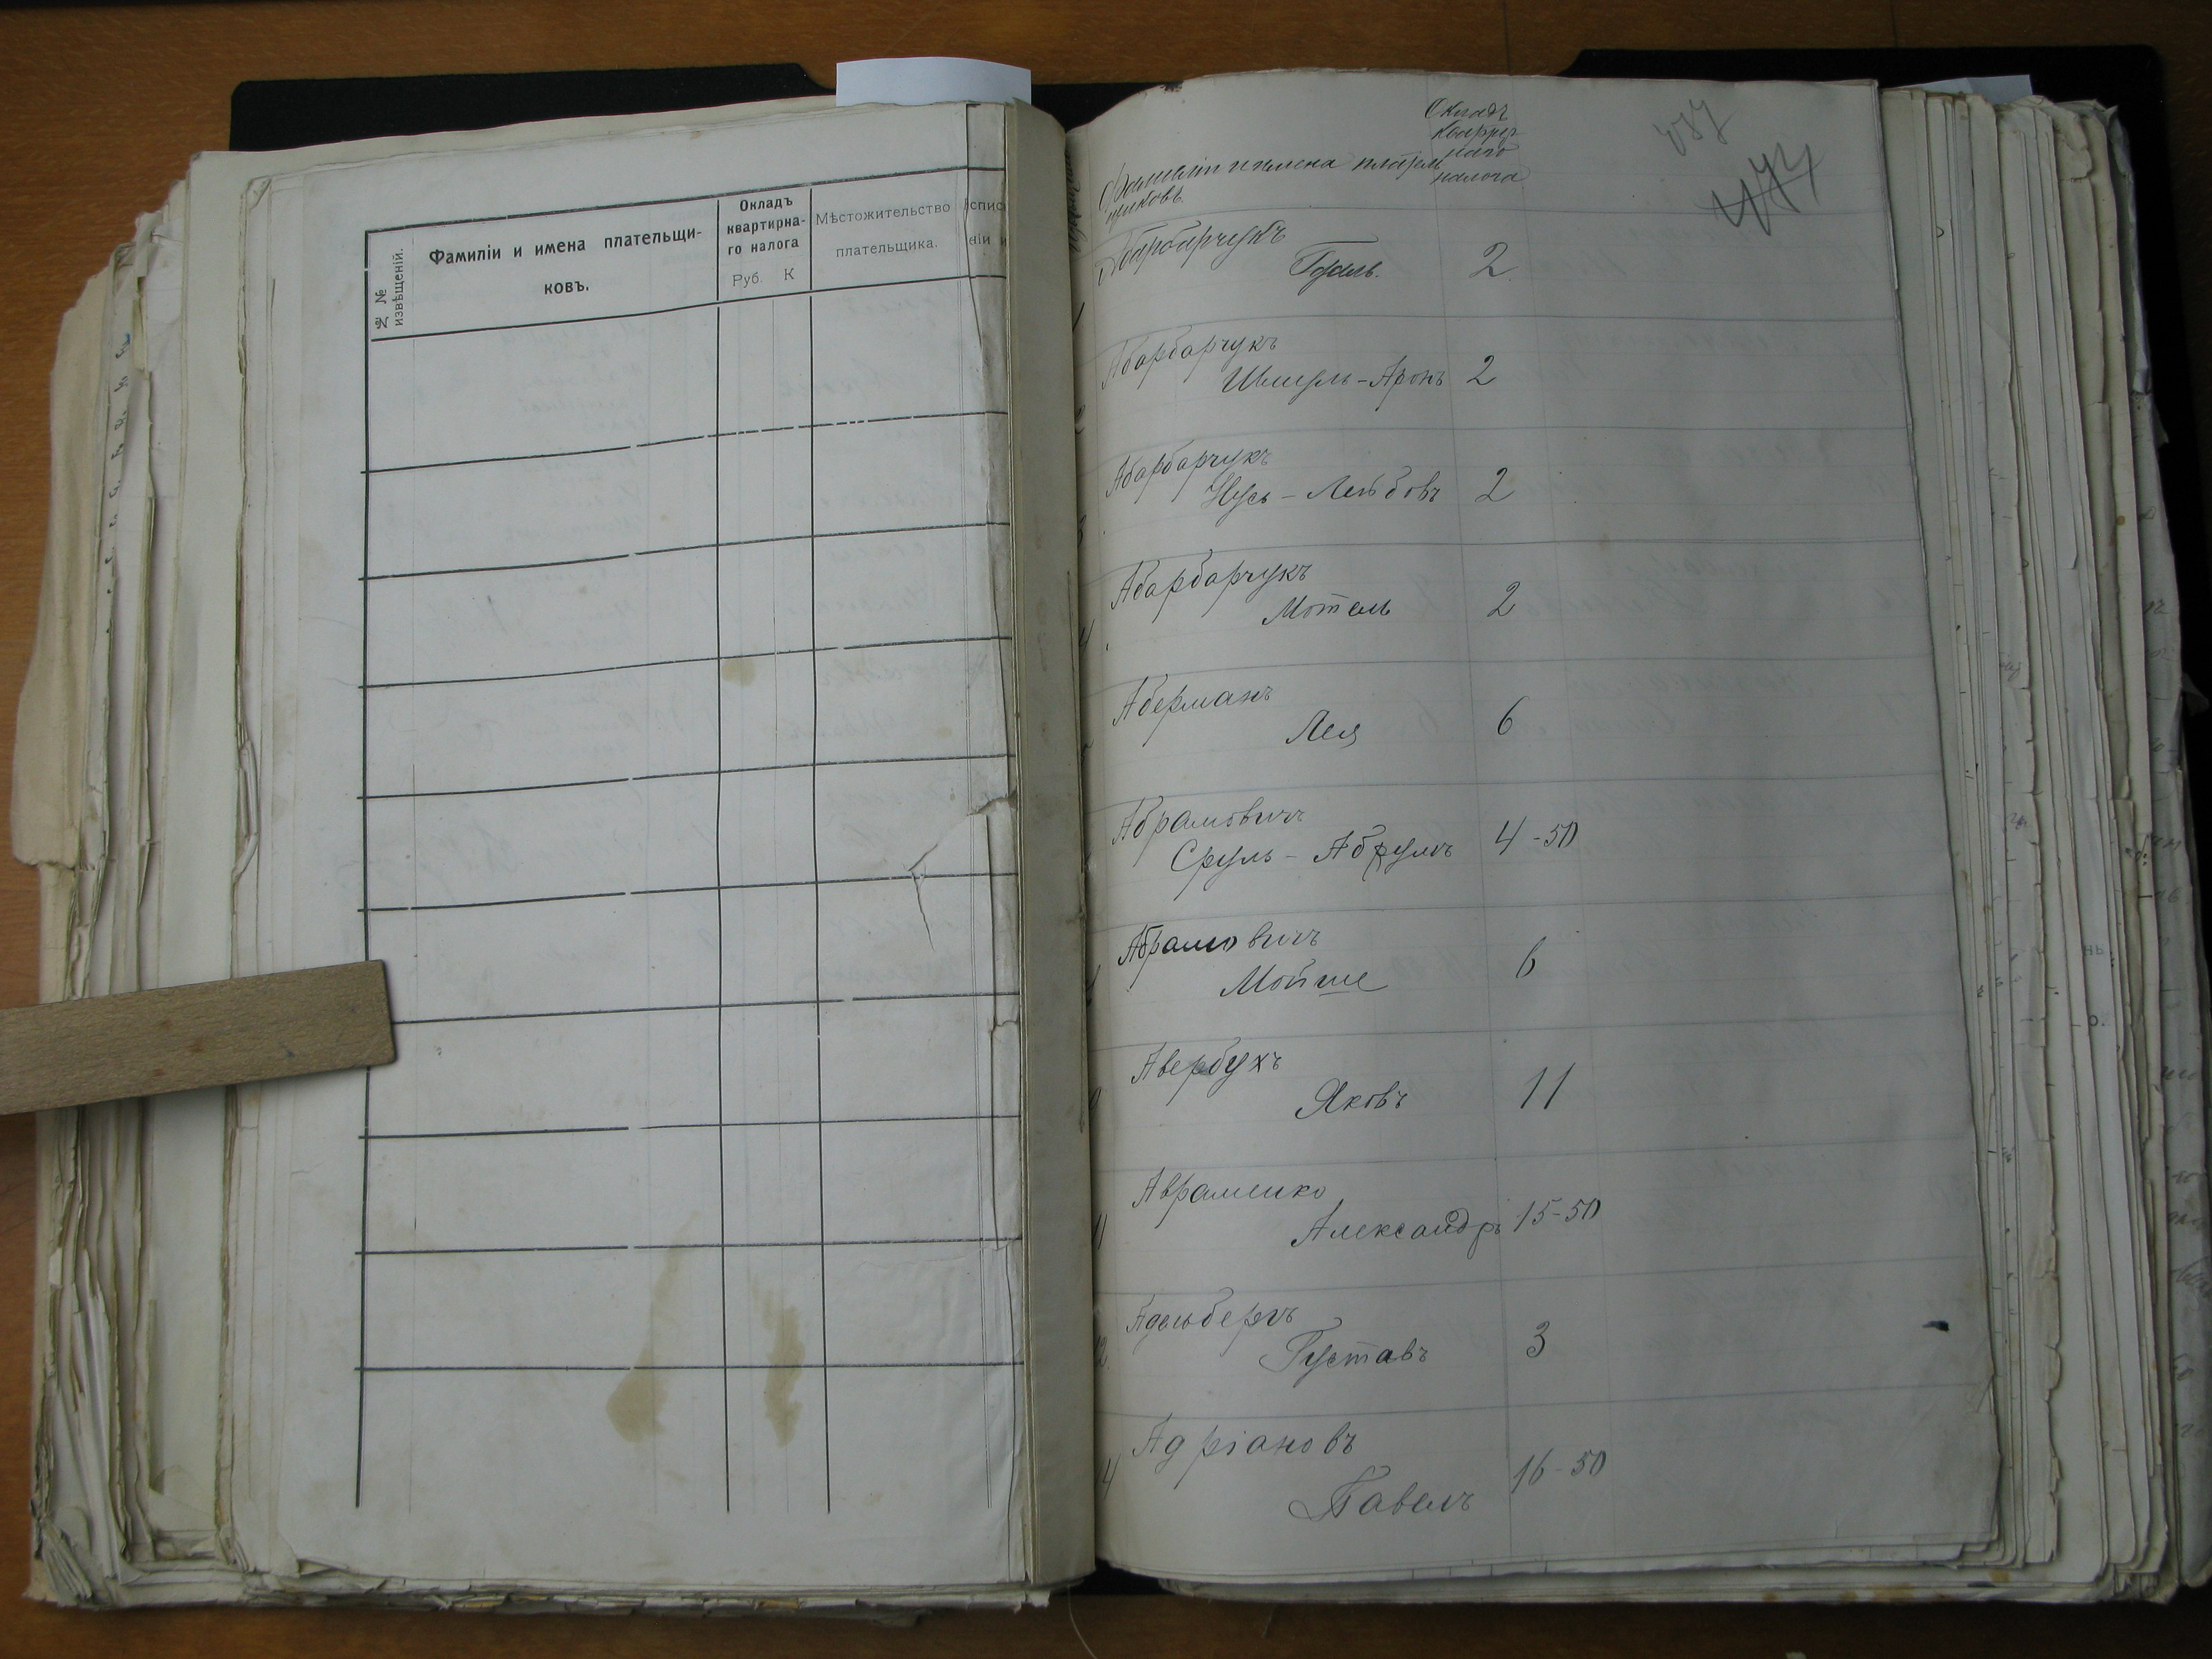 № № извѣщеній.
Фамиліи и имена плательщи-
ковъ.
Окладъ
квартирна-
го налога
Руб. К
Мѣстожительство
плательщика.
Окладъ
квартир
наго
налога
Фамиліи и имена плательщиковъ.
Абарбарчукъ
2
Абарбарчукъ
Шмуль-Аронъ 2
Абарбарчукъ
Нусь-Лейбовъ 2
Абарбарчукъ
Мотель 2
Аберманъ
Лея 6
Абрамовичъ
Сруль-Абрумъ 4-50
Абрамовичъ
Мойше 6
Авербухъ
Яковъ 11
Авраменко
Александръ 15-50
Адельбергъ
Густавъ 3
Адріановъ
Павелъ 16-50